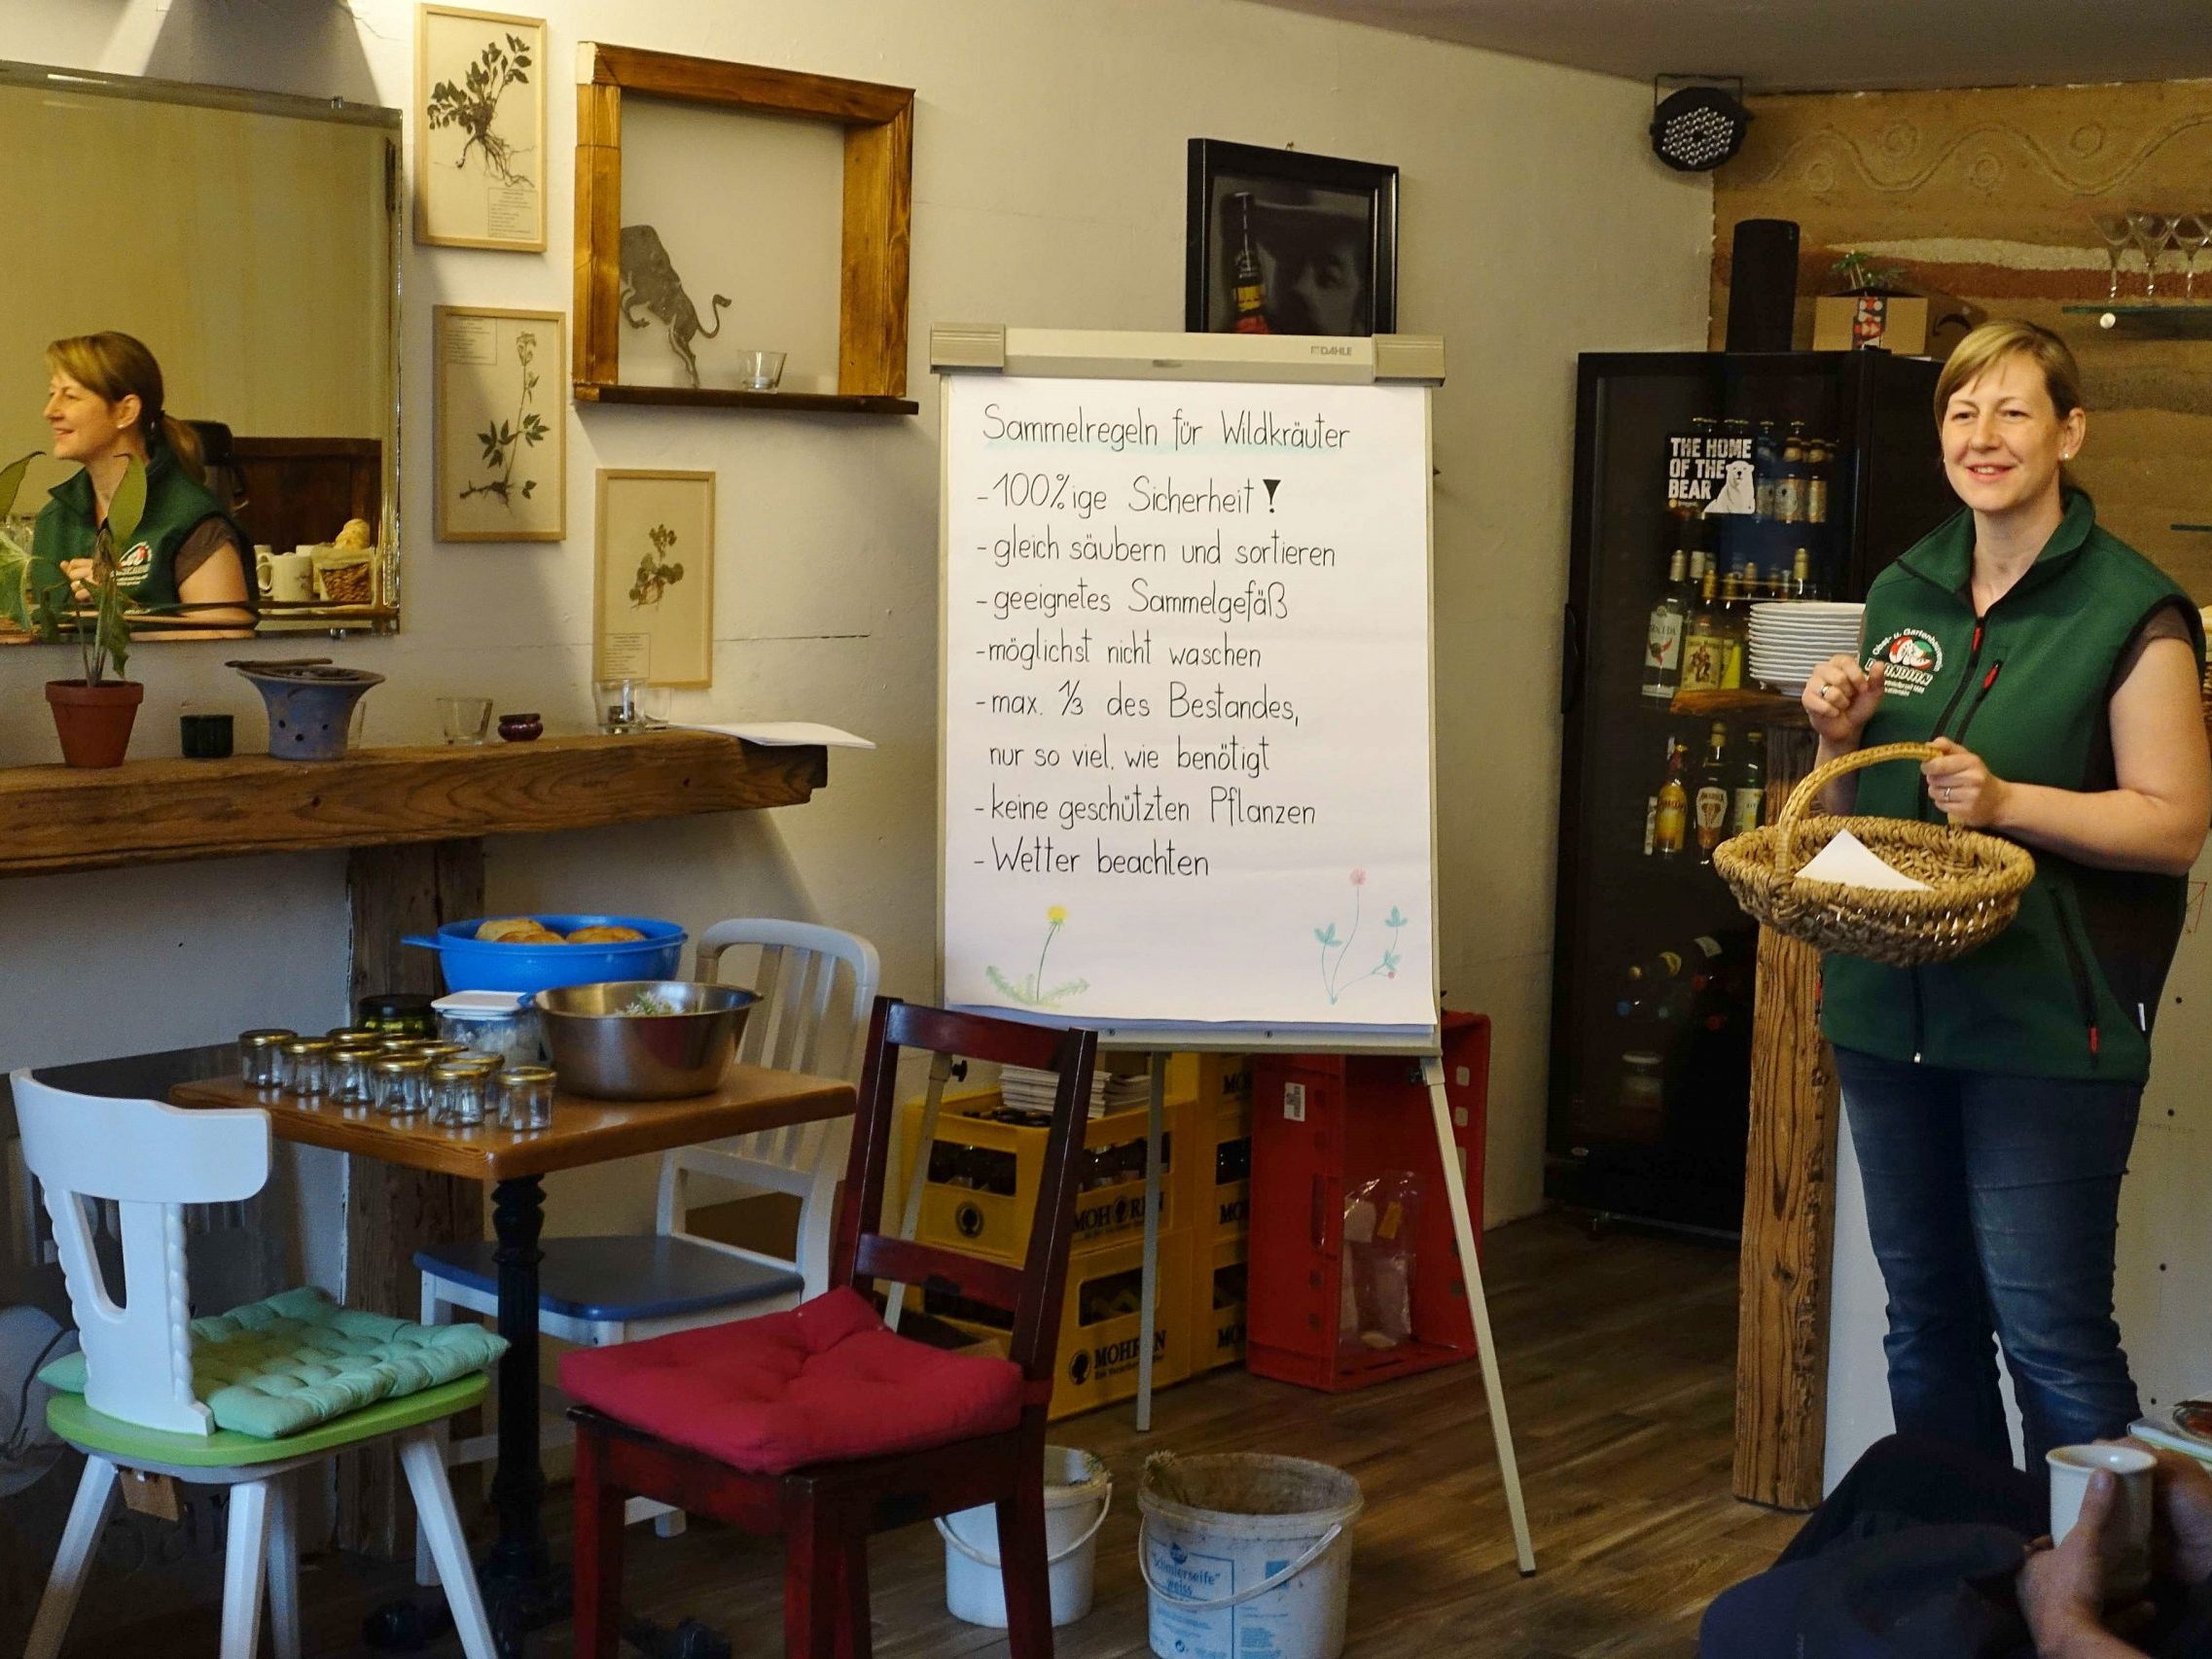 DAHLE
Sammelregeln für Wildkräuter
- 100%ige Sicherheit!
- gleich säubern und sortieren
- geeignetes Sammelgefäß
- möglichst nicht waschen
- max. 1/3 des Bestandes,
nur so viel, wie benötigt
- keine geschützten Pflanzen
- Wetter beachten
THE HOME
OF THE
BEAR
Obst- u. Gartenbauverein
MOHREN
MOHREN
"Schmierseife"
weiss